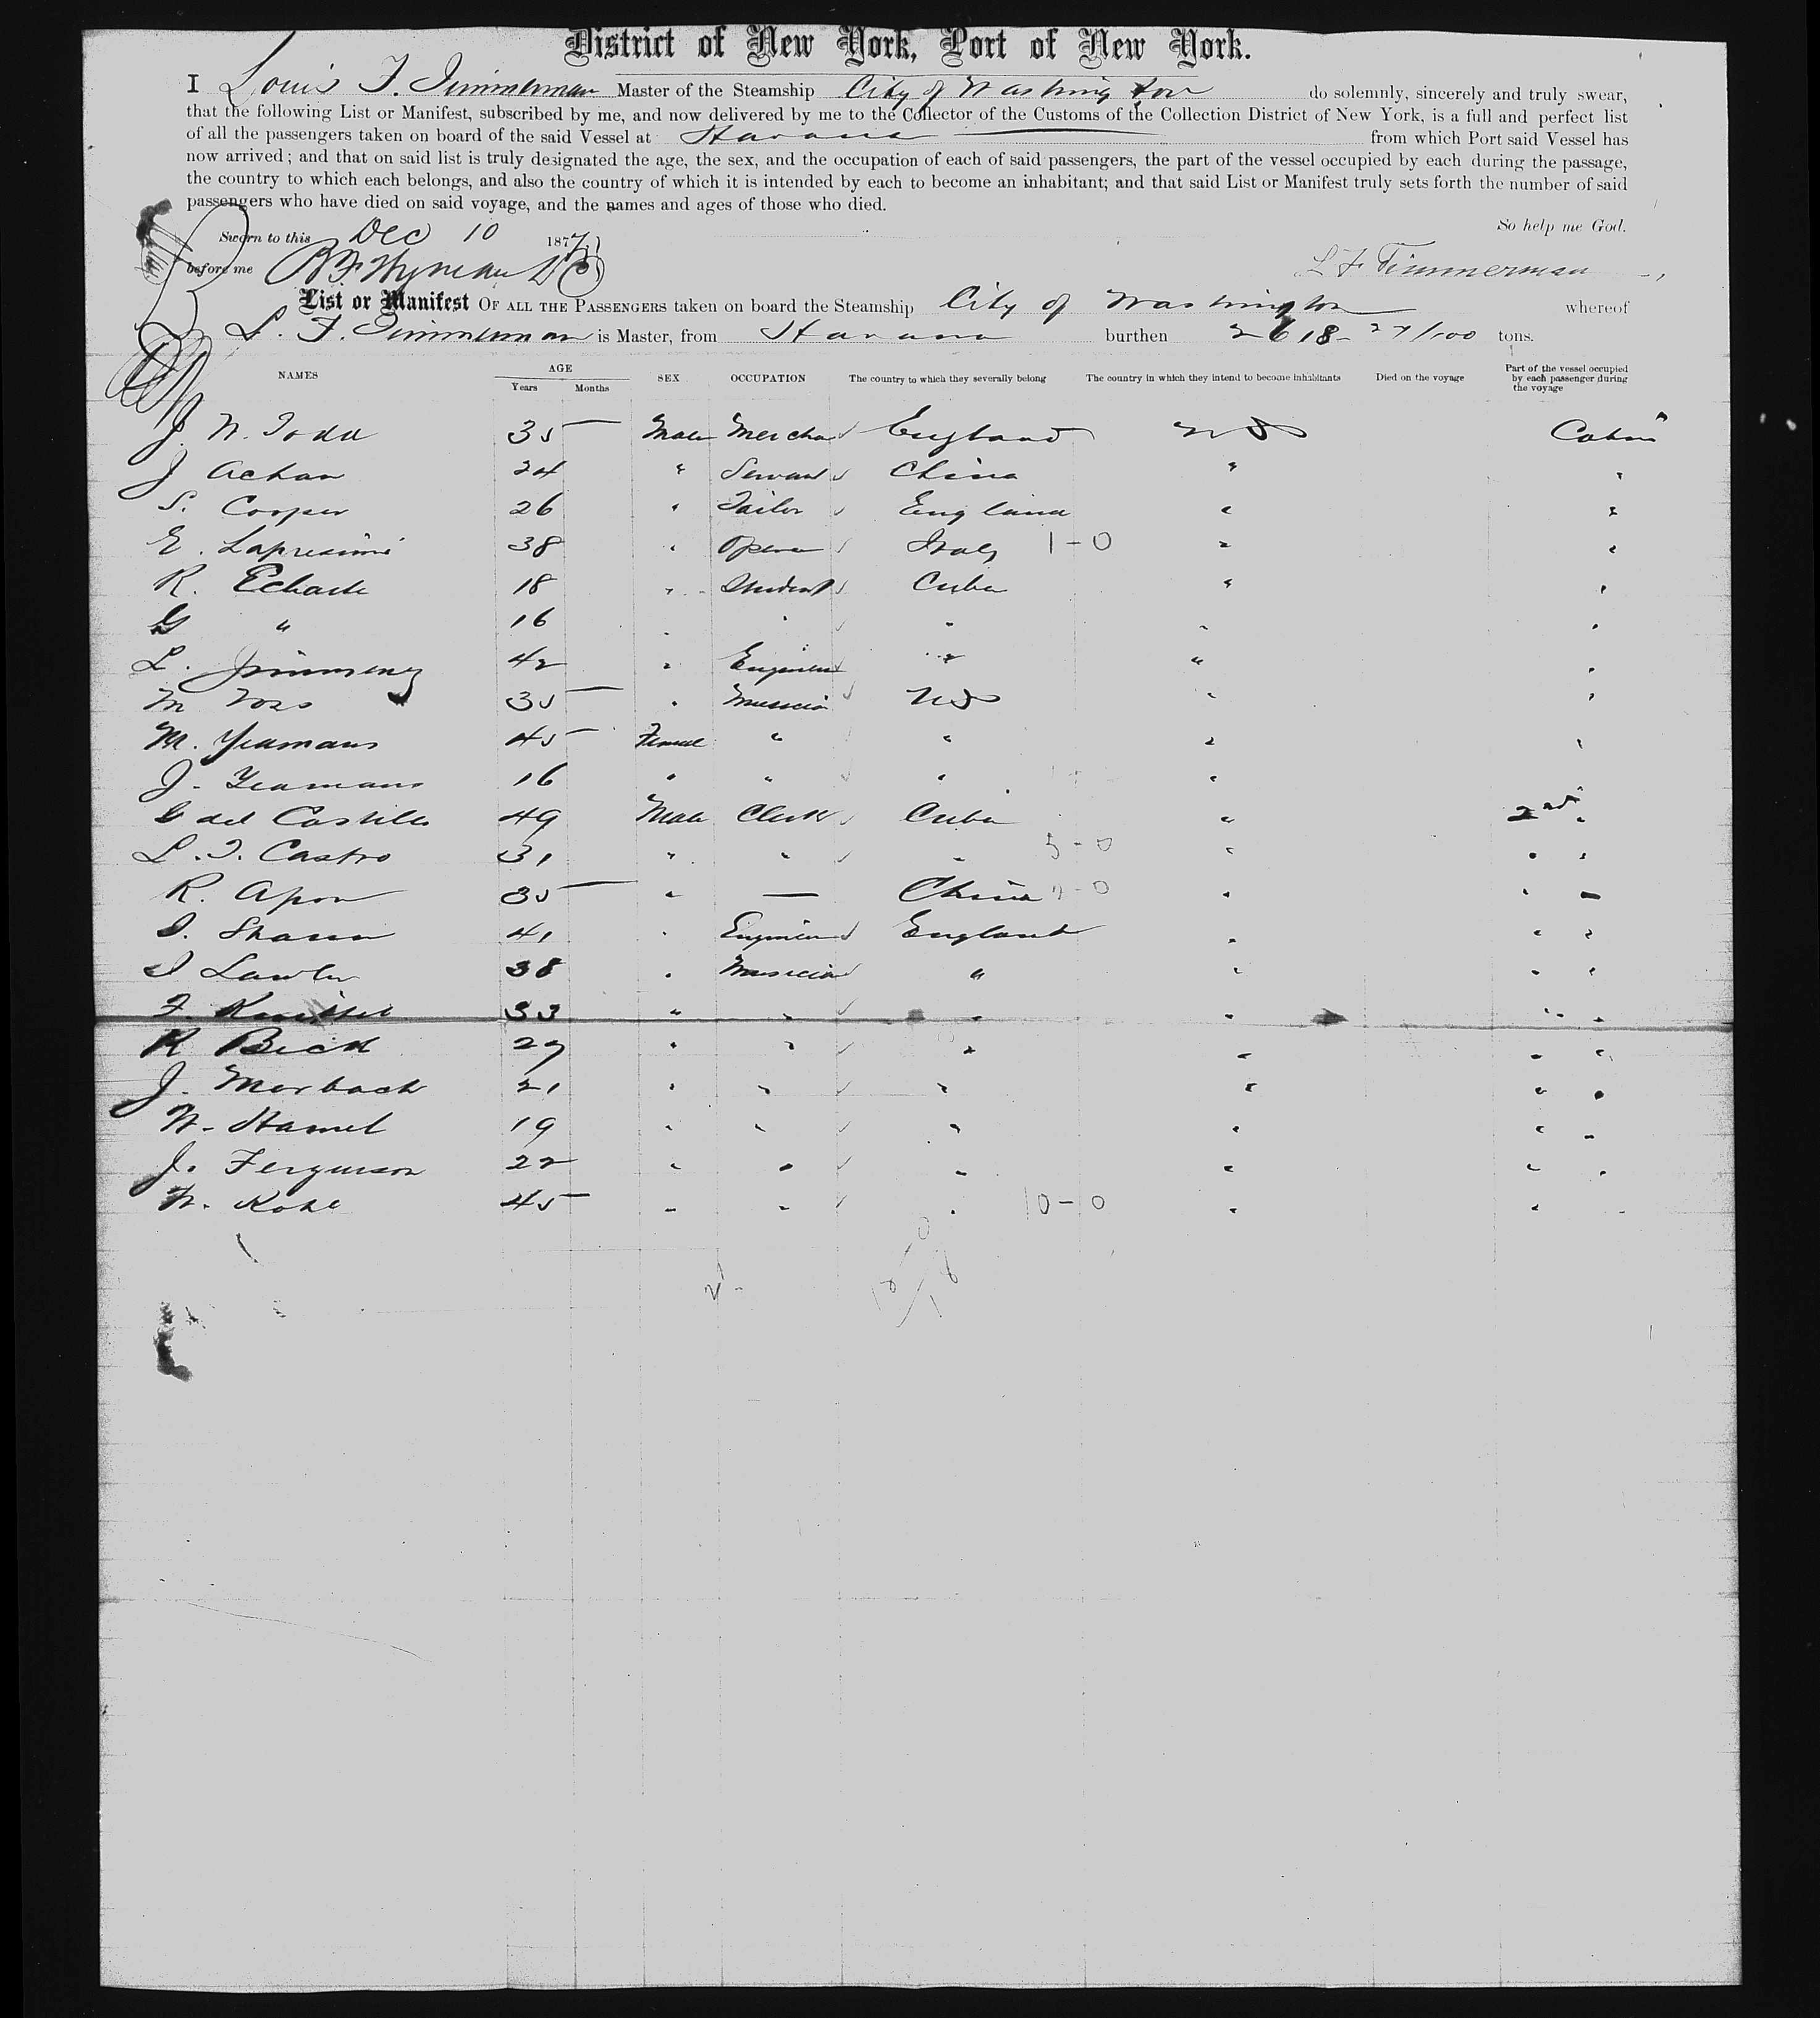 District of New York, Port of New York.
I Louis F. Timmerman Master of the Steamship City of Washington do solemnly, sincerely and truly swear,
that the following List or Manifest, subscribed by me, and now delivered by me to the Collector of the Customs of the Collection District of New York, is a full and perfect list
of all the passengers taken on board of the said Vessel at Havana from which Port said Vessel has
now arrived; and that on said list is truly designated the age, the sex, and the occupation of each of said passengers, the part of the vessel occupied by each during the passage,
the country to which each belongs, and also the country of which it is intended by each to become an inhabitant; and that said List or Manifest truly sets forth the number of said
passengers who have died on said voyage, and the names and ages of those who died.
So help me God.
Sworn to this Dec 10 1877
before me L F Timmerman
List or Manifest OF ALL THE PASSENGERS taken on board the Steamship City of Washington whereof
L. F. Timmerman is Master, from Havana burthen 2618 - 27/100 tons.
NAMES AGE Years Months SEX OCCUPATION The country to which they severally belong The country in which they intend to become inhabitants Died on the voyage Part of the vessel occupied by each passenger during the voyage
J. W. Todd 35 Male Merchant England US Cabin
J Achan 24 " Servant China " "
S. Cooper 26 " Tailor England " "
E. 38 " Opera Italy 1-0 " "
R. Echarte 18 " Student Cuba " "
G " 16 " " " " "
L. Jimmenez 42 " Engineer " " "
M Voss 35 " Musician US " "
M. Yeamans 45 Female " " " "
J. Yeamans 16 " " " " "
G del Castillo 49 Male Clerk Cuba " 2nd "
L. F. Castro 31 " " " 5-0 " " "
R. Apon 35 " — China " " "
41 " Engineer England " " "
Lawler 38 " Musician " " " "
F. 33 " " " " " "
R Beck 27 " " " " " "
J. Morbach 21 " " " " " "
W. Hamel 19 " " " " " "
J. Ferguson 22 " " " " " "
W. Kohl 45 " " " 10-0 " "